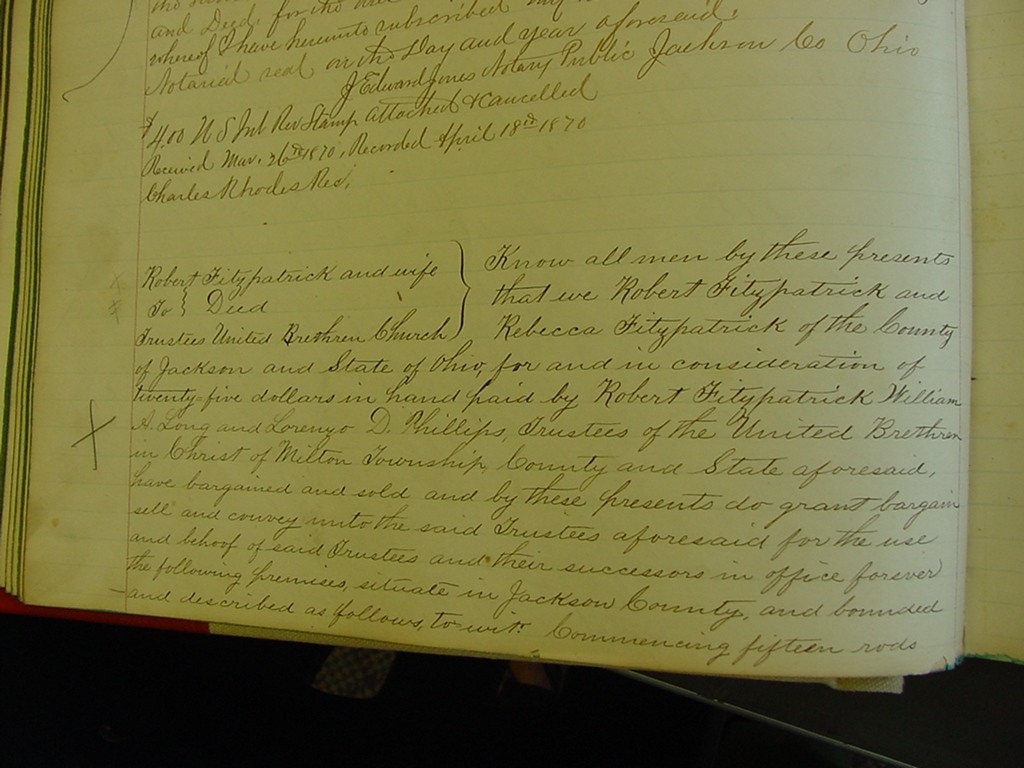 and Deed, for the
whereof I have hereunto subscribed my
Notarial seal on the Day and year aforesaid.
J Edward Jones Notary Public Jackson Co Ohio
$4.00 U S Int Rev Stamp attached & cancelled
Received Mar. 26th 1870, Recorded April 18th 1870
Charles Rhodes Rec,
Robert Fitzpatrick and wife
To } Deed
Trustees United Brethren Church
Know all men by these presents
that we Robert Fitzpatrick and
Rebecca Fitzpatrick of the County
of Jackson and State of Ohio, for and in consideration of
twenty-five dollars in hand paid by Robert Fitzpatrick William
A. Long and Lorenzo D. Phillips, Trustees of the United Brethren
in Christ of Milton Township, County and State aforesaid,
have bargained and sold and by these presents do grant bargain
sell and convey unto the said Trustees aforesaid for the use
and behoof of said Trustees and their successors in office forever
the following premises, situate in Jackson County, and bounded
and described as follows, to-wit: Commencing fifteen rods